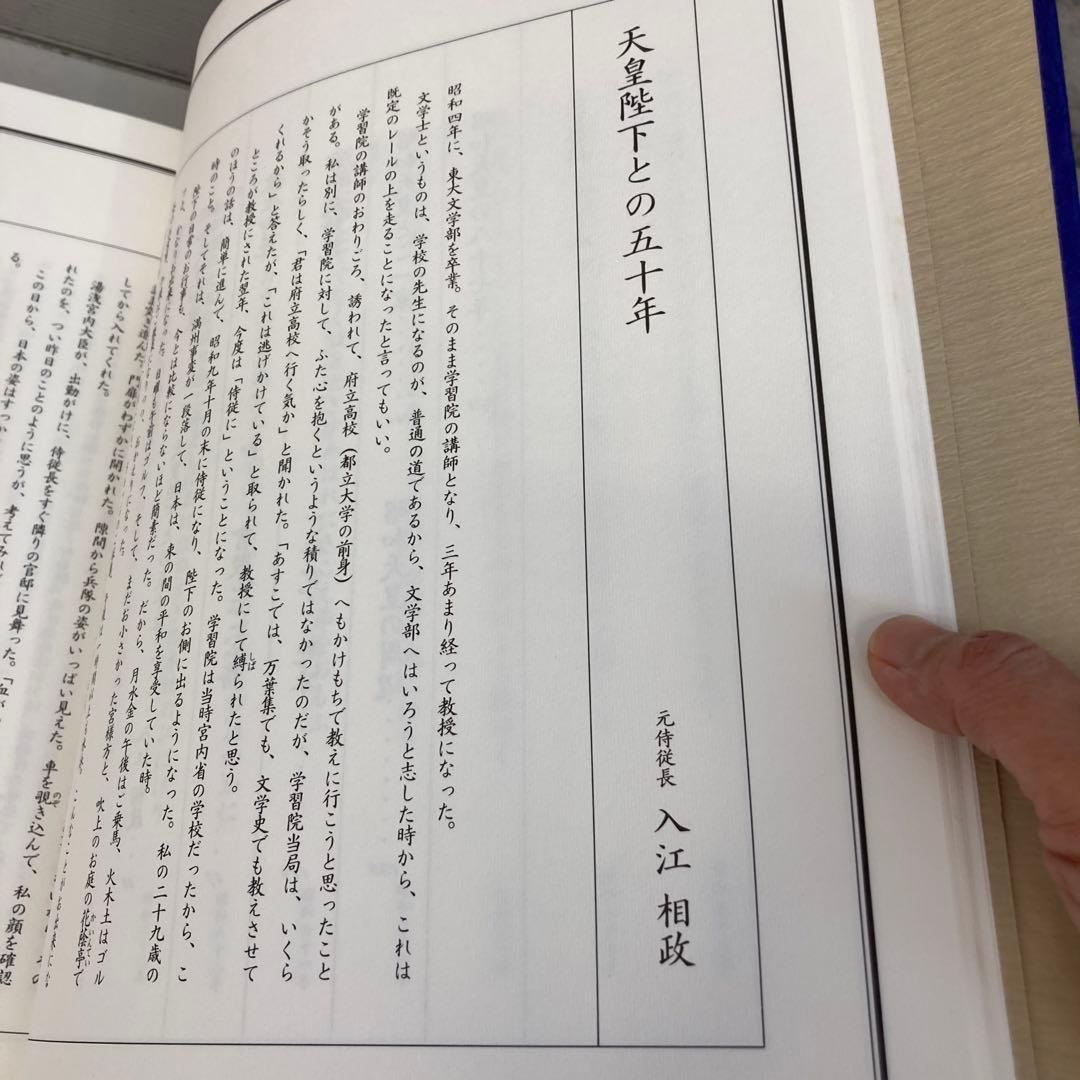 天皇陛下との五十年
元侍従長 入江相政
昭和四年に、東大文学部を卒業。そのまま学習院の講師となり、三年あまり経って教授になった。
文学士というものは、学校の先生になるのが、普通の道であるから、文学部へはいろうと志した時から、これは
既定のレールの上を走ることになったと言ってもいい。
学習院の講師のおわりごろ、誘われて、府立高校（都立大学の前身）へもかけもちで教えに行こうと思ったこと
がある。私は別に、学習院に対して、ふた心を抱くというような積りではなかったのだが、学習院当局は、いくら
かそう取ったらしく、「君は府立高校へ行く気か」と聞かれた。「あすこでは、万葉集でも、文学史でも教えさせて
くれるから」と答えたが、「これは逃げかけている」と取られて、教授にして縛られたと思う。
しば
ところが教授にされた翌年、今度は「侍従に」ということになった。学習院は当時宮内省の学校だったから、こ
のほうの話は、簡単に進んで、昭和九年十月の末に侍従になり、陛下のお側に出るようになった。私の二十九歳の
時のこと。そしてそれは、満州事変が一段落して、日本は、束の間の平和を享受していた時。
陛下の日常のお行事も、今とは比較にならないほど簡素だった。だから、月水金の午後はご乗馬、火木土はゴル
そして、まだお小さかった宮様方と、吹上のお庭の花蔭亭で
かいんてい
してから入れてくれた。門扉がわずかに開かれた。隙間から兵隊の姿がいっぱい見えた。車を覗き込んで、私の顔を確認
のぞ
湯浅宮内大臣が、出勤がけに、侍従長をすぐ隣りの官邸に見舞った。
れたのを、つい昨日のことのように思うが、考えてみれ
この日から、日本の姿はすっか
る。